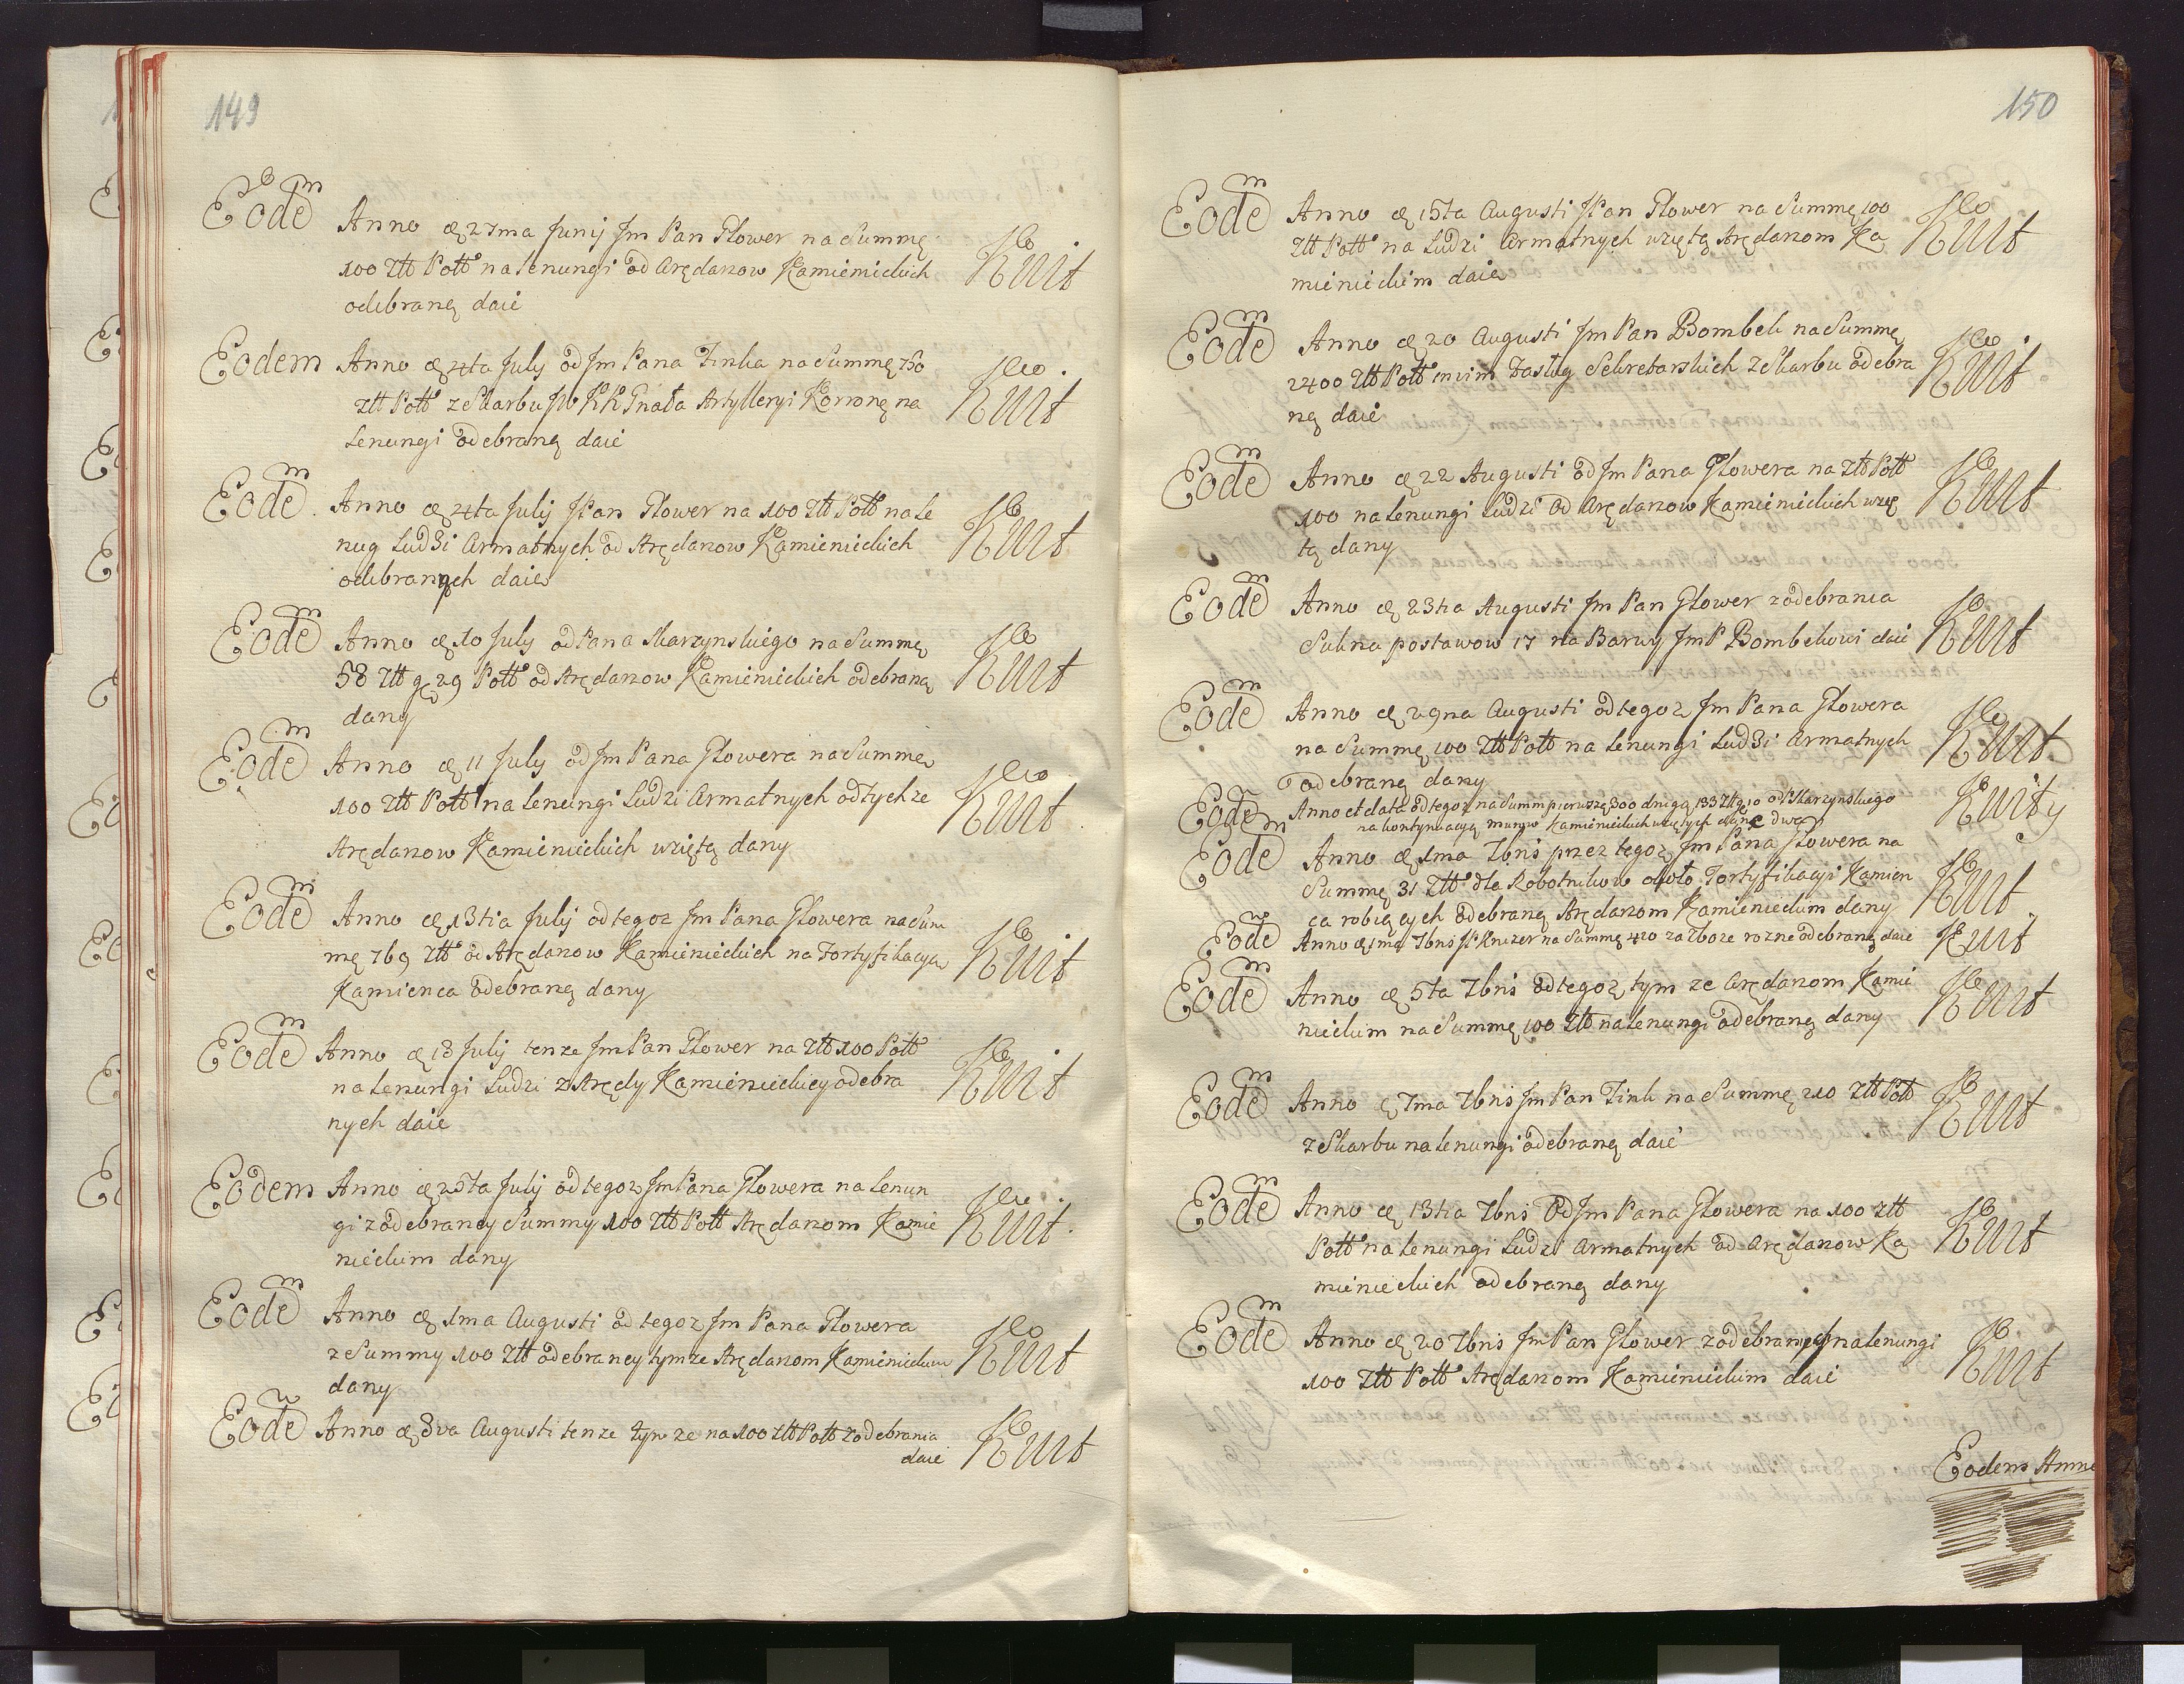 149
Eodem Anno d. 27ma Junij Jm Pan Glower na Summę
100 Złł Poll na lenungi od Arędarzow Kamienieckich Kwit
odebraną daie
Eodem Anno d. 4ta July od Jm Pana Finka na Summę
Złł Poll z Skarbu Artylleryi Koronną na Kwit
Lenungi odebraną daie
Eodem Anno d. 4ta Julij JPan Glower na 100 Złł Poll na le
nug Ludzi Armatnych od Arędarzow Kamienieckich Kwit
odebranych daie
Eodem Anno d. 10 July od Pana Skarzynskiego na Summę
58 Złł g 29 Poll od Arędarzow Kamienieckich odebraną Kwit
dany
Eodem Anno d. 11 July od Jm Pana Glowera na Summę
100 Złł Poll na lenungi Ludzi Armatnych od tychze Kwit
Arędarzow Kamienieckich wziętą dany
Eodem Anno d. 13tia Julij od tegoz Jm Pana Glowera na Sum
mę 769 Złł od Arędarzow Kamienieckich na Fortyfikacyą Kwit
Kamienca odebraną dany
Eodem Anno d. 18 Julij tenze Jm Pan Glower na Złł 100 Poll
na lenungi Ludzi z Arędy Kamienieckiey odebra Kwit
nych daie
Eodem Anno d. 25ta Julij od tegoz Jm Pana Glowera na lenun
gi z odebraney Summy 100 Złł Poll Arędarzom Kamie Kwit
nieckim dany
Eodem Anno d. 1ma Augusti od tegoz Jm Pana Glowera
z Summy 100 Złł odebraney tymze Arędarzom Kamienieckim Kwit
dany
Eodem Anno d. 8va Augusti tenze tymze na 100 Złł Poll z odebrania
daie Kwit
150
Eodem Anno d. 15ta Augusti JPan Glower na Summę 100
Złł Poll na Ludzi Armatnych wziętą Arędarzom Ka Kwit
mienieckim daie
Eodem Anno d. 20 Augusti Jm Pan Bombek na Summę
2400 Złł Poll Zasług Sekretarskich z Skarbu odebra Kwit
ną daie
Eodem Anno d. 22 Augusti od Jm Pana Glowera na Złł Poll
100 na lenungi Ludzi od Arędarzow Kamienieckich wzię Kwit
tą dany
Eodem Anno d. 23tia Augusti Jm Pan Glower z odebrania
Sukna postawow 17 na Barwy JmP Bombekowi daie Kwit
Eodem Anno d. 29na Augusti od tegoz Jm Pana Glowera
na Summę 100 Złł Poll na lenungi Ludzi Armatnych Kwit
odebraną dany
Eodem Anno et data od tegoz na Summ pierwszą 300 drugą 133 Złł g 10 od Skarzynskiego
na kontynuacyą murow Kamienieckich wziętych dane dwa Kwity
Eodem Anno d. 1ma 7bris przez tegoz Jm Pana Glowera na
Summę 31 Złł dla Robotnikow około Fortyfikacyi Kamien
ca robiących odebraną Arędarzom Kamienieckim dany Kwit
Eodem Anno d. 1ma 7bris JP Knezer na Summę 420 za Zboze rozne odebraną daie Kwit
Eodem Anno d. 5ta 7bris od tegoz tymze Arędarzom Kamie
nieckim na Summę 100 Złł na lenungi odebraną dany Kwit
Eodem Anno d. 7ma 7bris Jm Pan Fink na Summę 210 Złł Poll
z Skarbu na lenungi odebraną daie Kwit
Eodem Anno d. 13tia 7bris Od Jm Pana Glowera na 100 Złł
Poll na lenungi Ludzi Armatnych od Arędarzow Ka Kwit
mienieckich odebraną dany
Eodem Anno d. 20 7bris Jm Pan Glower z odebranych na lenungi
100 Złł Poll Arędarzom Kamienieckim daie Kwit
Eodem Anno